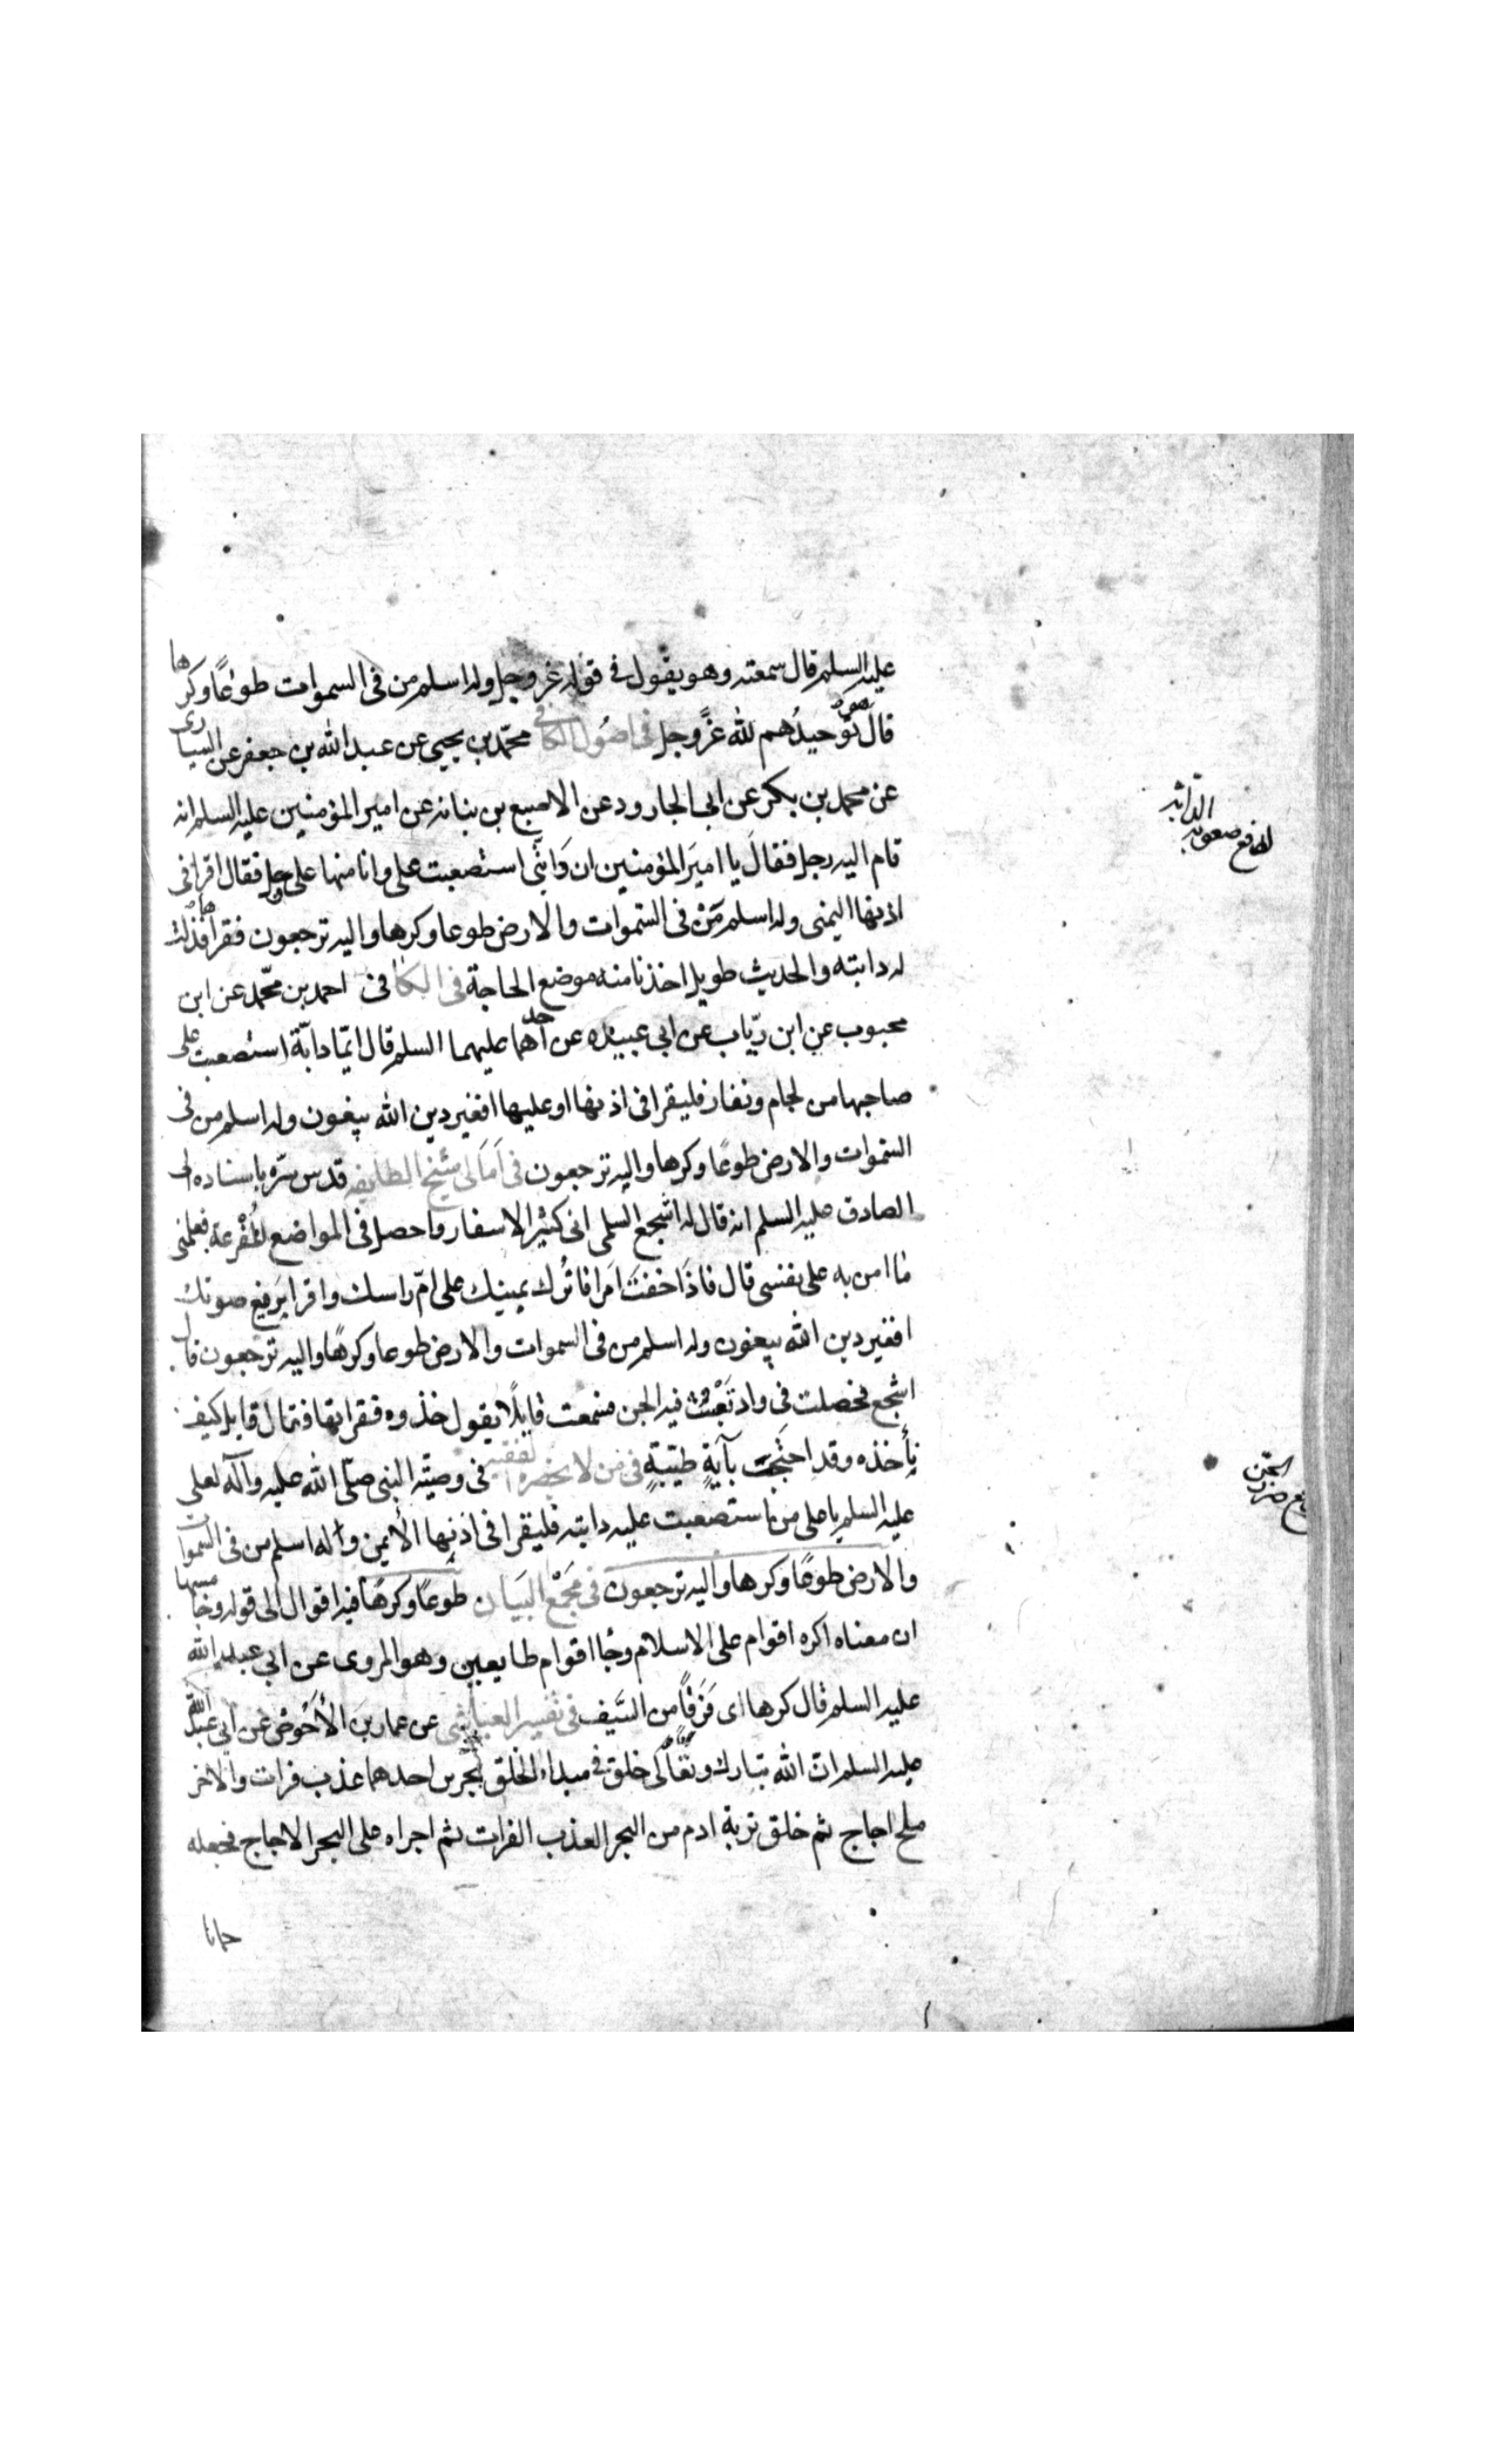 عليه السلم قال سمعته وهو يقول في قوله عز وجل وله اسلم من فى السموات طوعًا وكرها
قال توحيدُهم لله عزّ وجل فى اصُول الكافى محمّد بن يحيى عن عبد الله بن جعفر عن السيارى
عن محمد بن بكر عن ابى الجارود عن الاصبغ بن نباته عن امير المؤمنين عليه السلم انه
قام اليه رجل فقال يا اميرَ المؤمنين ان دَابّتى استصعبت على وانا منها على وجل فقال اقرا فى
اذنها اليمنى وله اسلم مَنْ فى السّموات والارض طوعا وكرها واليه ترجعون فقراها فذلت
له دابته والحديث طويل اخذنا منه موضع الحاجة فى الكافى احمد بن محمّد عن ابن
محبوب عن ابن رياب عن ابى عبيده عن احدهما عليهما السلم قال ايّما دابّة استصعبت على
صاحبها من لجام ونفار فليقرا فى اذنها او عليها افغير دين الله يبغون وله اسلم من فى
السّموات والارض طوعًا وكرها واليه ترجعون فى اَمَالى شيخ الطايفه قدس سرّه باسناده الى
الصادق عليه السلم انه قال له اشجع السلمى انى كثير الاسفار واحصل فى المواضع المُفْزعة فعلمنى
ما امن به على نفسى قال فاذَا خفتَ امرا فاترك يمينك على امّ راسك واقرا برفيع صوتك
افغير دين الله يبغون وله اسلم من فى السموات والارض طوعا وكرهًا واليه ترجعون قال
اشجع فحصلت فى واد تَعْبَثُ فيه الجن فسمعت قايلًا يقول خذوه فقراتها فقالَ قايل كيف
نأخذه وقد احتجَبَ بآيةٍ طيّبةٍ فى من لا يحضره الفقيه فى وصيّه النبى صلّى الله عليه وآله لعلى
عليه السلم يا على من استصعبت عليه دابته فليقرا فى اذنها الأيمن وله اسلم من فى السموات
والارض طوعًا وكرها واليه ترجعون فى مَجَمْع البَيَان طوعًا وكرهًا فيه اقوال الى قوله وخامسها
ان معناه اكره اقوام على الاسلام وجٰا اقوام طايعين وهو المروى عن ابى عبد الله
عليه السلم قال كرها اى فَرَقًا من السَّيف فى تفسير العياشى عن عمار بن الأحْوص عن ابى عبد الله
عليه السلم انّ الله تبارك وتعالى خلق فى مبداء الخلق بحرين احدهما عذب فرات والاخر
ملح اجاج ثم خلق تربة ادم من البحر العذب الفرات ثم اجراه على البحر الاجاج فجعله
حمانا
لدفع صعوبة
الدابّه
الجن